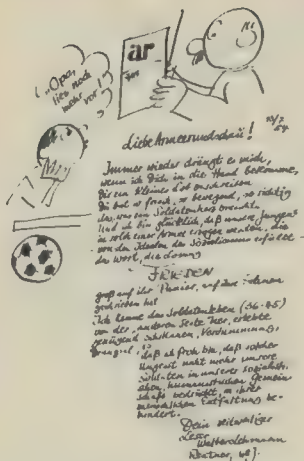 „Opa,
lies noch
mehr vor!"
ar
liebe Armeerundschau!
Immer wieder drängt es mich,
wenn ich Dich in die Hand bekomme,
Dir ein kleines Lob
Du bist so frisch, so bewegend, so richtig
das, was ein Soldatenherz braucht.
Und ich bin glücklich, daß unsere Jungens
in solch einer Armee erzogen werden, die
von den Idealen des Sozialismus erfüllt
das Wort, die Losung
FRIEDEN
groß auf ihr Panier, auf ihre Fahnen
geschrieben hat.
Ich kenne das Soldatenleben (36-45)
von der "anderen Seite" her, erlebte
genügend Schikanen, Verdummung,
daß ich froh bin, daß solcher
Ungeist nicht mehr unsere
Soldaten in unserer sozialist-
schen, humanistischen Gemein-
schaft bedrückt, in ihrer
menschlichen Entfaltung be-
hindert.
Dein
Leser
Rentner,